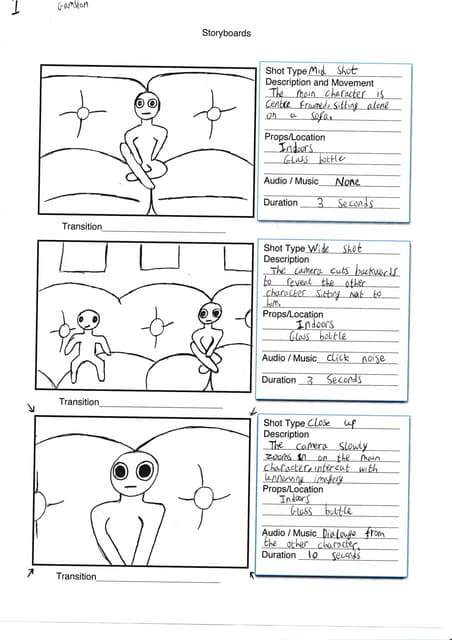 1
Storyboards
Shot Type Mid Shot
Description and Movement
The main character is
Centre framed, sitting alone
on a sofa.
Props/Location
Indoors
Glass bottle
Audio / Music None
Duration 3 Seconds
Transition
Shot Type Wide Shot
Description
The camera cuts backwards
to reveal the other
character sitting next to
him.
Props/Location
Indoors
Glass bottle
Audio / Music Click noise
Duration 3 Seconds
Transition
Shot Type Close up
Description
The camera slowly
zooms in on the main
character, intercut with
unnerving imagery
Props/Location
Indoors
Glass bottle
Audio / Music Dialouge from
the other character.
Duration 10 seconds
Transition